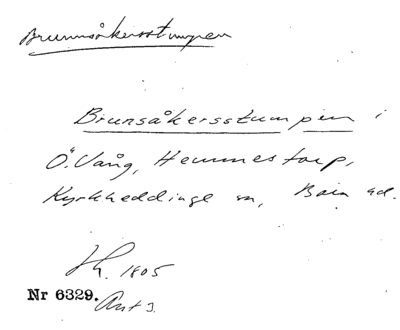 Brunnsåkersstumpen
Brunsåkersstumpen i
Ö. Vång, Hemmestorp,
Kyrkheddinge sn, Bara hd.
Lh. 1805
Nr 6329. Akt 3.